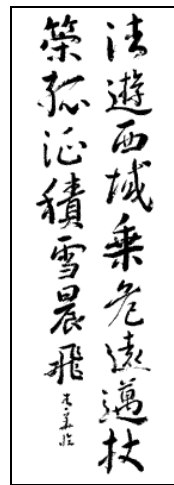 法遊西域乗危遠邁杖
策孤征積雪晨飛